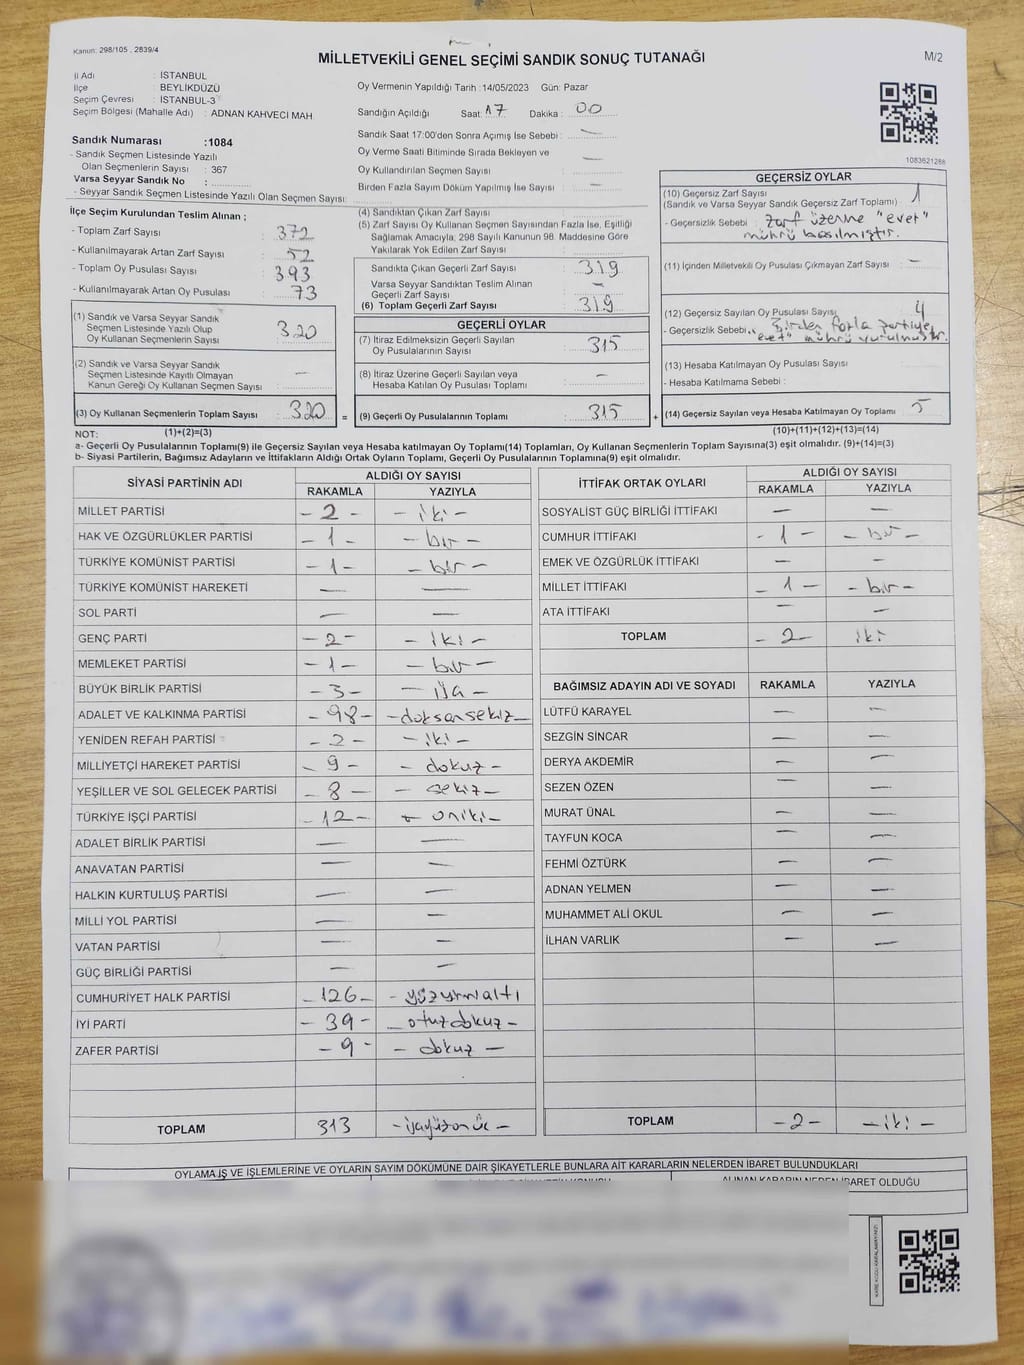 Kanun: 298/105 , 2839/4
MİLLETVEKİLİ GENEL SEÇİMİ SANDIK SONUÇ TUTANAĞI
M/2
İl Adı : İSTANBUL
İlçe BEYLİKDÜZÜ
Seçim Çevresi : İSTANBUL-3
Seçim Bölgesi (Mahalle Adı) : ADNAN KAHVECİ MAH.
Oy Vermenin Yapıldığı Tarih :14/05/2023 Gün: Pazar
Sandığın Açıldığı Saat: 17 Dakika: 00
Sandık Saat 17:00'den Sonra Açımış İse Sebebi : —
Oy Verme Saati Bitiminde Sırada Bekleyen ve
Oy Kullandırılan Seçmen Sayısı : —
Birden Fazla Sayım Döküm Yapılmış İse Sayısı : —
Sandık Numarası :1084
- Sandık Seçmen Listesinde Yazılı
Olan Seçmenlerin Sayısı : 367
Varsa Seyyar Sandık No :
- Seyyar Sandık Seçmen Listesinde Yazılı Olan Seçmen Sayısı:
1083621288
İlçe Seçim Kurulundan Teslim Alınan ;
- Toplam Zarf Sayısı : 372
- Kullanılmayarak Artan Zarf Sayısı : 52
- Toplam Oy Pusulası Sayısı : 393
- Kullanılmayarak Artan Oy Pusulası : 73
(1) Sandık ve Varsa Seyyar Sandık
Seçmen Listesinde Yazılı Olup
Oy Kullanan Seçmenlerin Sayısı : 320
(2) Sandık ve Varsa Seyyar Sandık
Seçmen Listesinde Kayıtlı Olmayan
Kanun Gereği Oy Kullanan Seçmen Sayısı : —
(3) Oy Kullanan Seçmenlerin Toplam Sayısı : 320 =
(4) Sandıktan Çıkan Zarf Sayısı :
(5) Zarf Sayısı Oy Kullanan Seçmen Sayısından Fazla İse, Eşitliği
Sağlamak Amacıyla; 298 Sayılı Kanunun 98. Maddesine Göre
Yakılarak Yok Edilen Zarf Sayısı :
Sandıkta Çıkan Geçerli Zarf Sayısı : 319
Varsa Seyyar Sandıktan Teslim Alınan
Geçerli Zarf Sayısı : —
(6) Toplam Geçerli Zarf Sayısı : 319
GEÇERLİ OYLAR
(7) İtiraz Edilmeksizin Geçerli Sayılan
Oy Pusulalarının Sayısı : 315
(8) İtiraz Üzerine Geçerli Sayılan veya
Hesaba Katılan Oy Pusulası Toplamı : —
(9) Geçerli Oy Pusulalarının Toplamı : 315 +
GEÇERSİZ OYLAR
(10) Geçersiz Zarf Sayısı
(Sandık ve Varsa Seyyar Sandık Geçersiz Zarf Toplamı) : 1
- Geçersizlik Sebebi : Zarf üzerine "evet"
mührü basılmıştır.
(11) İçinden Milletvekili Oy Pusulası Çıkmayan Zarf Sayısı : —
(12) Geçersiz Sayılan Oy Pusulası Sayısı : 4
- Geçersizlik Sebebi : Birden fazla partiye
evet" mührü vurulmuştur.
(13) Hesaba Katılmayan Oy Pusulası Sayısı :
- Hesaba Katılmama Sebebi :
(14) Geçersiz Sayılan veya Hesaba Katılmayan Oy Toplamı : 5
NOT: (1)+(2)=(3) (10)+(11)+(12)+(13)=(14)
a- Geçerli Oy Pusulalarının Toplamı(9) ile Geçersiz Sayılan veya Hesaba katılmayan Oy Toplamı(14) Toplamları, Oy Kullanan Seçmenlerin Toplam Sayısına(3) eşit olmalıdır. (9)+(14)=(3)
b- Siyasi Partilerin, Bağımsız Adayların ve İttifakların Aldığı Ortak Oyların Toplamı, Geçerli Oy Pusulalarının Toplamına(9) eşit olmalıdır.
SİYASİ PARTİNİN ADI ALDIĞI OY SAYISI
RAKAMLA YAZIYLA
MİLLET PARTİSİ - 2 - - iki -
HAK VE ÖZGÜRLÜKLER PARTİSİ - 1 - - bir -
TÜRKİYE KOMÜNİST PARTİSİ - 1 - - bir -
TÜRKİYE KOMÜNİST HAREKETİ — —
SOL PARTİ — —
GENÇ PARTİ - 2 - - iki -
MEMLEKET PARTİSİ - 1 - - bir -
BÜYÜK BİRLİK PARTİSİ - 3 - - üç -
ADALET VE KALKINMA PARTİSİ - 98 - - doksansekiz -
YENİDEN REFAH PARTİSİ - 2 - - iki -
MİLLİYETÇİ HAREKET PARTİSİ - 9 - - dokuz -
YEŞİLLER VE SOL GELECEK PARTİSİ - 8 - - sekiz -
TÜRKİYE İŞÇİ PARTİSİ - 12 - - oniki -
ADALET BİRLİK PARTİSİ — —
ANAVATAN PARTİSİ — —
HALKIN KURTULUŞ PARTİSİ — —
MİLLİ YOL PARTİSİ — —
VATAN PARTİSİ — —
GÜÇ BİRLİĞİ PARTİSİ — —
CUMHURİYET HALK PARTİSİ - 126 - - yüzyirmialtı
İYİ PARTİ - 39 - - otuzdokuz -
ZAFER PARTİSİ - 9 - - dokuz -
TOPLAM 313 - üçyüzonüç -
İTTİFAK ORTAK OYLARI ALDIĞI OY SAYISI
RAKAMLA YAZIYLA
SOSYALİST GÜÇ BİRLİĞİ İTTİFAKI — —
CUMHUR İTTİFAKI - 1 - - bir -
EMEK VE ÖZGÜRLÜK İTTİFAKI — —
MİLLET İTTİFAKI - 1 - - bir -
ATA İTTİFAKI — —
TOPLAM - 2 - iki
BAĞIMSIZ ADAYIN ADI VE SOYADI RAKAMLA YAZIYLA
LÜTFÜ KARAYEL — —
SEZGİN SİNCAR — —
DERYA AKDEMİR — —
SEZEN ÖZEN — —
MURAT ÜNAL — —
TAYFUN KOCA — —
FEHMİ ÖZTÜRK — —
ADNAN YELMEN — —
MUHAMMET ALİ OKUL — —
İLHAN VARLIK — —
TOPLAM - 2 - - iki -
OYLAMA İŞ VE İŞLEMLERİNE VE OYLARIN SAYIM DÖKÜMÜNE DAİR ŞİKAYETLERLE BUNLARA AİT KARARLARIN NELERDEN İBARET BULUNDUKLARI
ALINAN KARARIN NEDEN İBARET OLDUĞU